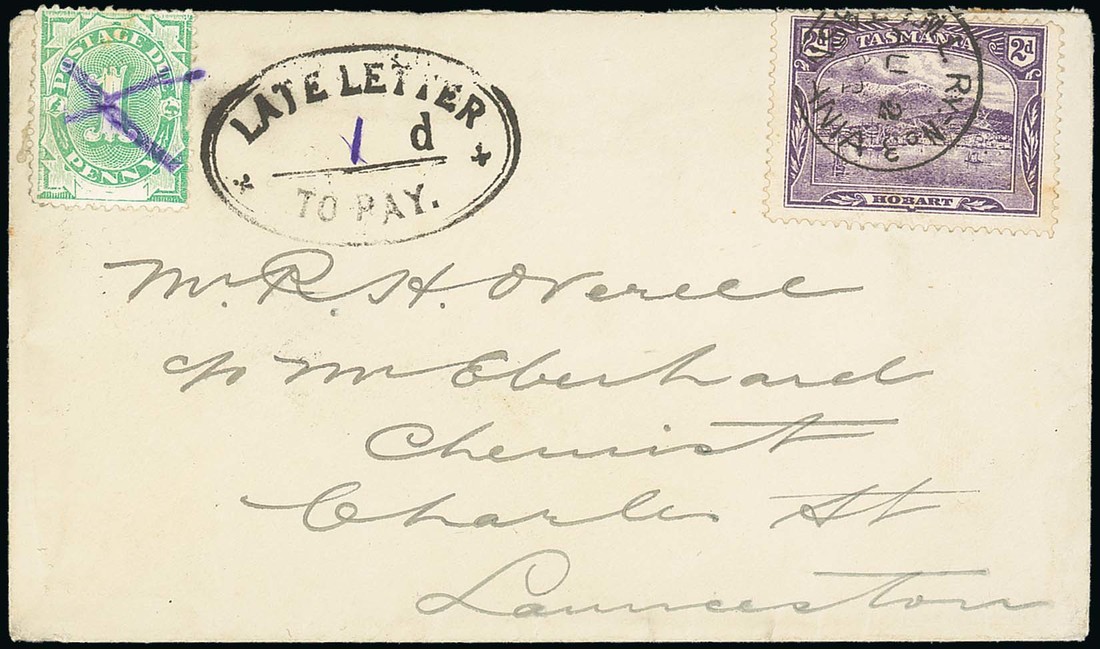 POSTAGE DUE
1
PENNY
LATE LETTER
1 d
TO PAY.
2d TASMANIA 2d
HOBART
Mr. R. H. Overell
c/o Mr Eberhard
Chemist
Charles St
Launceston